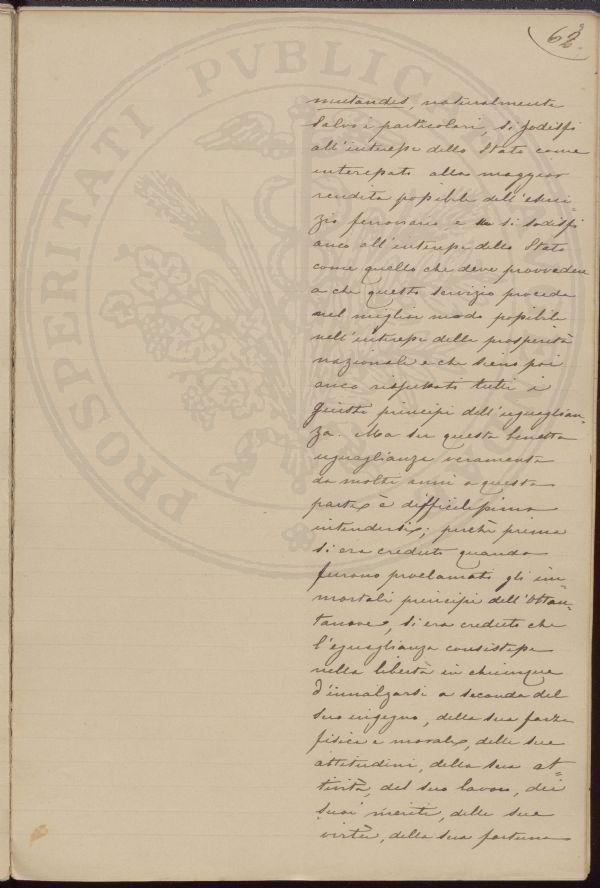 62
PROSPERITATI PVBLICAE
mutandis, naturalmente
salvo i particolari, si sodisfi
all'interesse dello Stato come
interessato alla maggior
rendita possibile dell'eserci-
zio ferroviario e si sodisfi
anco all'interesse dello Stato
come quello che deve provvedere
a che questo servizio proceda
nel miglior modo possibile
nell'interesse della prosperità
nazionale e che sieno poi
anco rispettati tutti i
giusti principi dell'uguaglian-
za. Ma su questa benetta
uguaglianza veramente
da molti anni a questa
parte è difficilissimo
intendersi; perchè prima
si era creduto quando
furono proclamati gli im-
mortali principi dell'Ottan-
tanove, si era creduto che
l'eguaglianza consistesse
nella libertà in chiunque
d'innalzarsi a seconda del
suo ingegno, della sua forza
fisica e morale, delle sue
attitudini, della sua at-
tività, del suo lavoro, dei
suoi meriti, delle sue
virtù, della sua fortuna